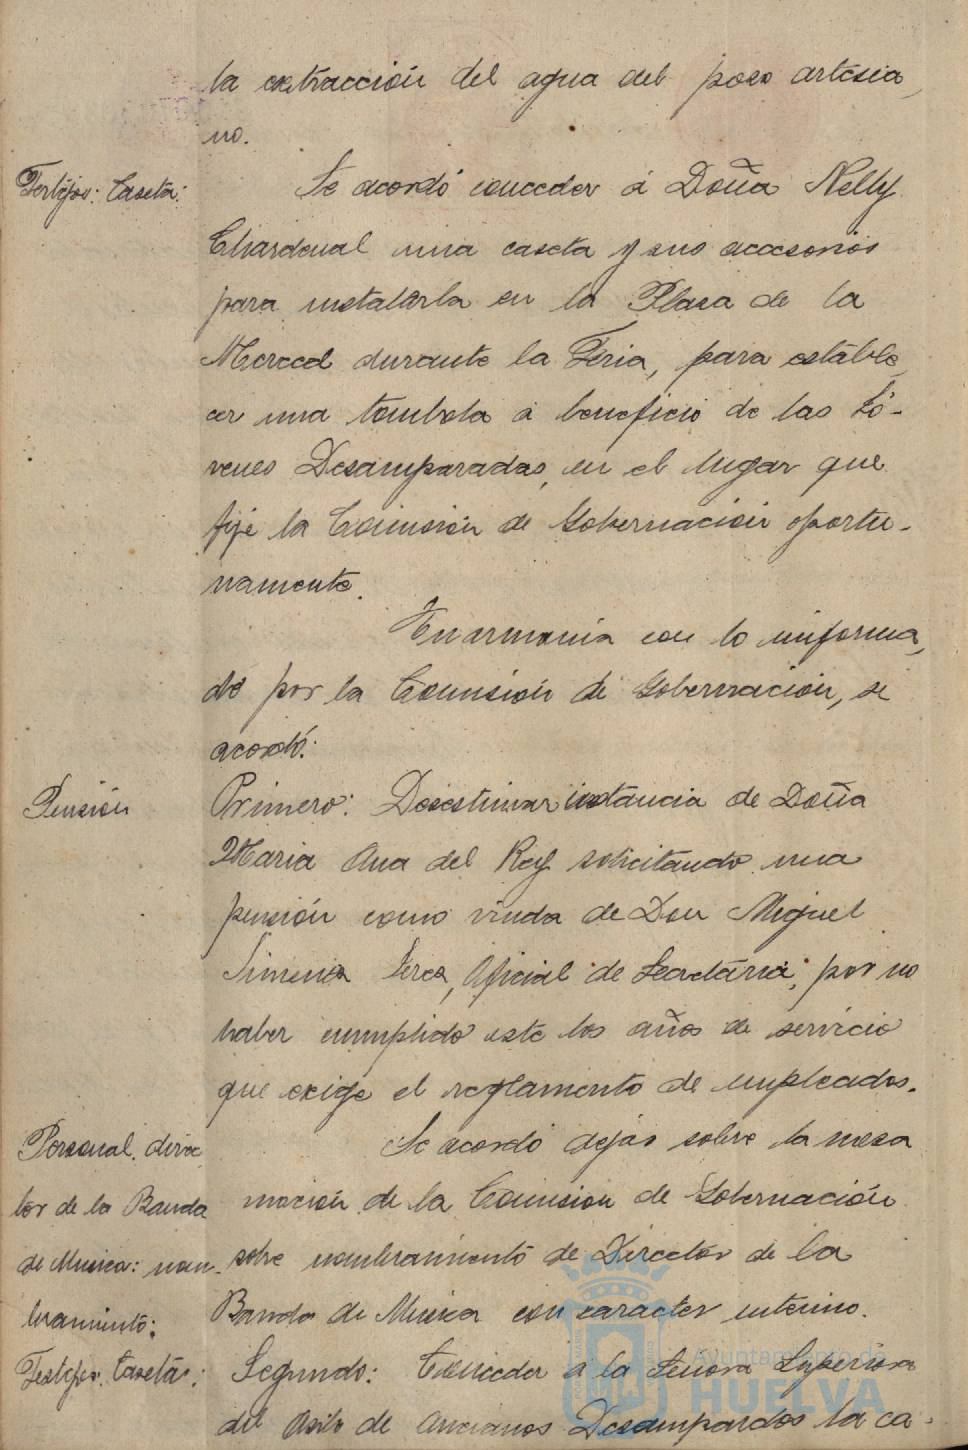 la extracción del agua del pozo artesia
no.
Festejos: Caseta:
Se acordó conceder á Doña Nelly
Chardenal una caseta y sus accesorios
para instalarla en la Plaza de la
Merced durante la Feria, para estable
cer una tombola a beneficio de las Jó-
venes Desamparadas, en el lugar que
fije la Comisión de Gobernación oportu-
namente.
En armonia con lo informa
do por la Comisión de Gobernación, se
acordó:
Pensión
Primero: Desestimar instancia de Doña
Maria Ana del Rey solicitando una
pensión como viuda de Don Miguel
Jimenez Oficial de Secretaria, por no
haber cumplido este los años de servicio
que exige el reglamento de empleados.
Personal. direc
tor de la Banda
de Musica: nom-
bramiento:
Se acordó dejar sobre la mesa
moción de la Comision de Gobernación
sobre nombramiento de Director de la
Banda de Musica con caracter interino.
Festejos. Casetas:
Segundo: Conceder a la Señora Superiora
del Asilo de Ancianos Desampardos la ca-
Ayuntamiento de
HUELVA